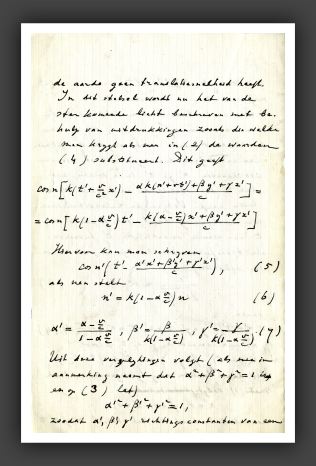 de aarde geen translatiesnelheid heeft.
In dit stelsel wordt nu het van de
ster komende licht beschreven met be-
hulp van uitdrukkingen zooals die welke
men krijgt als men in (2) de waarden
(4) substitueert. Dit geeft
cos n[k(t' + v/c² x') - (αk(x'+vt') + βy' + γz')/c] =
= cos n[k(1-α v/c)t' - (k(α - v/c)x' + βy' + γz')/c]
Hiervoor kan men schrijven
cos n'(t' - (α'x' + β'y' + γ'z')/c), (5)
als men stelt
n' = k(1-α v/c)n (6)
α' = (α - v/c)/(1-α v/c), β' = β/(k(1-α v/c)), γ' = γ/(k(1-α v/c)) (7)
Uit deze vergelijkingen volgt (als men in
aanmerking neemt dat α²+β²+γ²=1 is
en op (3) let)
α'²+β'²+γ'²=1,
zoodat α', β', γ' richtingsconstanten van een